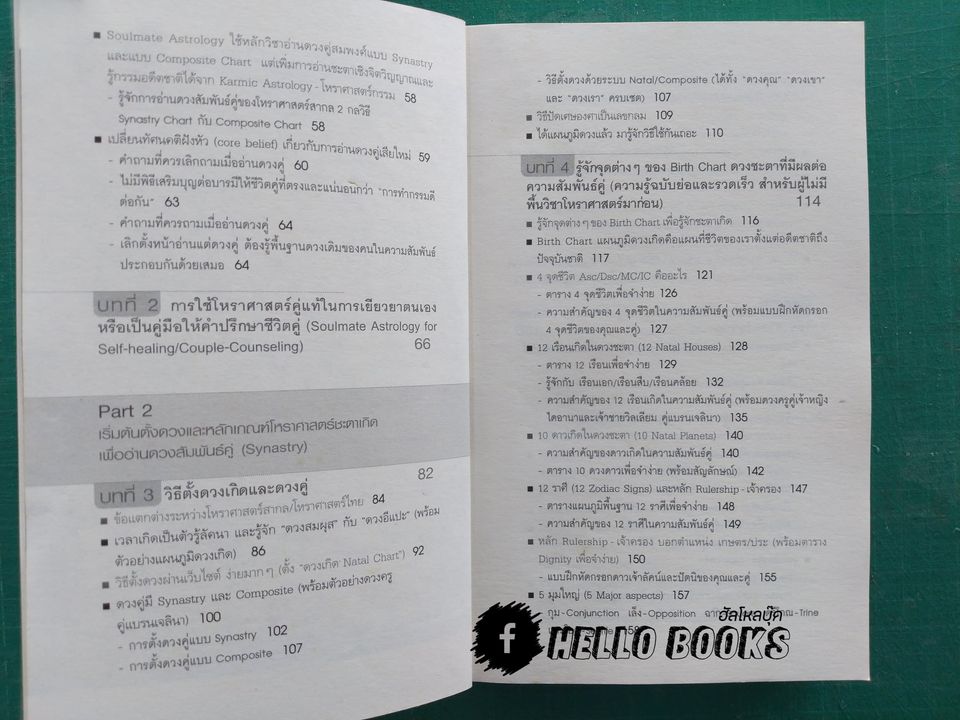 ■ Soulmate Astrology ใช้หลักวิชาอ่านดวงคู่สมพงศ์แบบ Synastry
และแบบ Composite Chart แต่เพิ่มการอ่านชะตาเชิงจิตวิญญาณและ
รู้กรรมอดีตชาติได้จาก Karmic Astrology - โหราศาสตร์กรรม 58
- รู้จักการอ่านดวงสัมพันธ์คู่ของโหราศาสตร์สากล 2 กลวิธี
Synastry Chart กับ Composite Chart 58
■ เปลี่ยนทัศนคติฝังหัว (core belief) เกี่ยวกับการอ่านดวงคู่เสียใหม่ 59
- คำถามที่ควรเลิกถามเมื่ออ่านดวงคู่ 60
- ไม่มีพิธีเสริมบุญต่อบารมีให้ชีวิตคู่ที่ตรงและแน่นอนกว่า "การทำกรรมดี
ต่อกัน" 63
- คำถามที่ควรถามเมื่ออ่านดวงคู่ 64
- เลิกตั้งหน้าอ่านแต่ดวงคู่ ต้องรู้พื้นฐานดวงเดิมของคนในความสัมพันธ์
ประกอบกันด้วยเสมอ 64
บทที่ 2 การใช้โหราศาสตร์คู่แท้ในการเยียวยาตนเอง
หรือเป็นคู่มือให้คำปรึกษาชีวิตคู่ (Soulmate Astrology for
Self-healing/Couple-Counseling) 66
Part 2
เริ่มต้นตั้งดวงและหลักเกณฑ์โหราศาสตร์ชะตาเกิด
เพื่ออ่านดวงสัมพันธ์คู่ (Synastry)
บทที่ 3 วิธีตั้งดวงเกิดและดวงคู่ 82
■ ข้อแตกต่างระหว่างโหราศาสตร์สากล/โหราศาสตร์ไทย 84
■ เวลาเกิดเป็นตัวรู้ลัคนา และรู้จัก "ดวงสมผุส" กับ "ดวงอีแปะ" (พร้อม
ตัวอย่างแผนภูมิดวงเกิด) 86
■ วิธีตั้งดวงผ่านเว็บไซต์ ง่ายมากๆ (ตั้ง "ดวงเกิด Natal Chart") 92
■ ดวงคู่มี Synastry และ Composite (พร้อมตัวอย่างดวงครู
คู่แบรนเจลินา) 100
- การตั้งดวงคู่แบบ Synastry 102
- การตั้งดวงคู่แบบ Composite 107
- วิธีตั้งดวงด้วยระบบ Natal/Composite (ได้ทั้ง "ดวงคุณ" "ดวงเขา"
และ "ดวงเรา" ครบเซต) 107
■ วิธีปัดเศษองศาเป็นเลขกลม 109
■ ได้แผนภูมิดวงแล้ว มารู้จักวิธีใช้กันเถอะ 110
บทที่ 4 รู้จักจุดต่างๆ ของ Birth Chart ดวงชะตาที่มีผลต่อ
ความสัมพันธ์คู่ (ความรู้ฉบับย่อและรวดเร็ว สำหรับผู้ไม่มี
พื้นวิชาโหราศาสตร์มาก่อน) 114
■ รู้จักจุดต่างๆ ของ Birth Chart เพื่อรู้จักชะตาเกิด 116
■ Birth Chart แผนภูมิดวงเกิดคือแผนที่ชีวิตของเราตั้งแต่อดีตชาติถึง
ปัจจุบันชาติ 117
■ 4 จุดชีวิต Asc/Dsc/MC/IC คืออะไร 121
- ตาราง 4 จุดชีวิตเพื่อจำง่าย 126
- ความสำคัญของ 4 จุดชีวิตในความสัมพันธ์คู่ (พร้อมแบบฝึกหัดกรอก
4 จุดชีวิตของคุณและคู่) 127
■ 12 เรือนเกิดในดวงชะตา (12 Natal Houses) 128
- ตาราง 12 เรือนเพื่อจำง่าย 129
- รู้จักกับ เรือนเอก/เรือนสืบ/เรือนคล้อย 132
- ความสำคัญของ 12 เรือนเกิดในความสัมพันธ์คู่ (พร้อมดวงครูคู่เจ้าหญิง
ไดอานาและเจ้าชายวิลเลียม คู่แบรนเจลินา) 135
■ 10 ดาวเกิดในดวงชะตา (10 Natal Planets) 140
- ความสำคัญของดาวเกิดในความสัมพันธ์คู่ 140
- ตาราง 10 ดวงดาวเพื่อจำง่าย (พร้อมสัญลักษณ์) 142
■ 12 ราศี (12 Zodiac Signs) และหลัก Rulership - เจ้าครอง 147
- ตารางแผนภูมิพื้นฐาน 12 ราศีเพื่อจำง่าย 148
- ความสำคัญของ 12 ราศีในความสัมพันธ์คู่ 149
■ หลัก Rulership - เจ้าครอง บอกตำแหน่ง เกษตร/ประ (พร้อมตาราง
Dignity เพื่อจำง่าย) 150
- แบบฝึกหัดกรอกดาวเจ้าลัคน์และปัตนิของคุณและคู่ 155
■ 5 มุมใหญ่ (5 Major aspects) 157
กุม - Conjunction เล็ง - Opposition ฉาก - Trine
ฮัลโหลบุ๊ค
f HELLO BOOKS